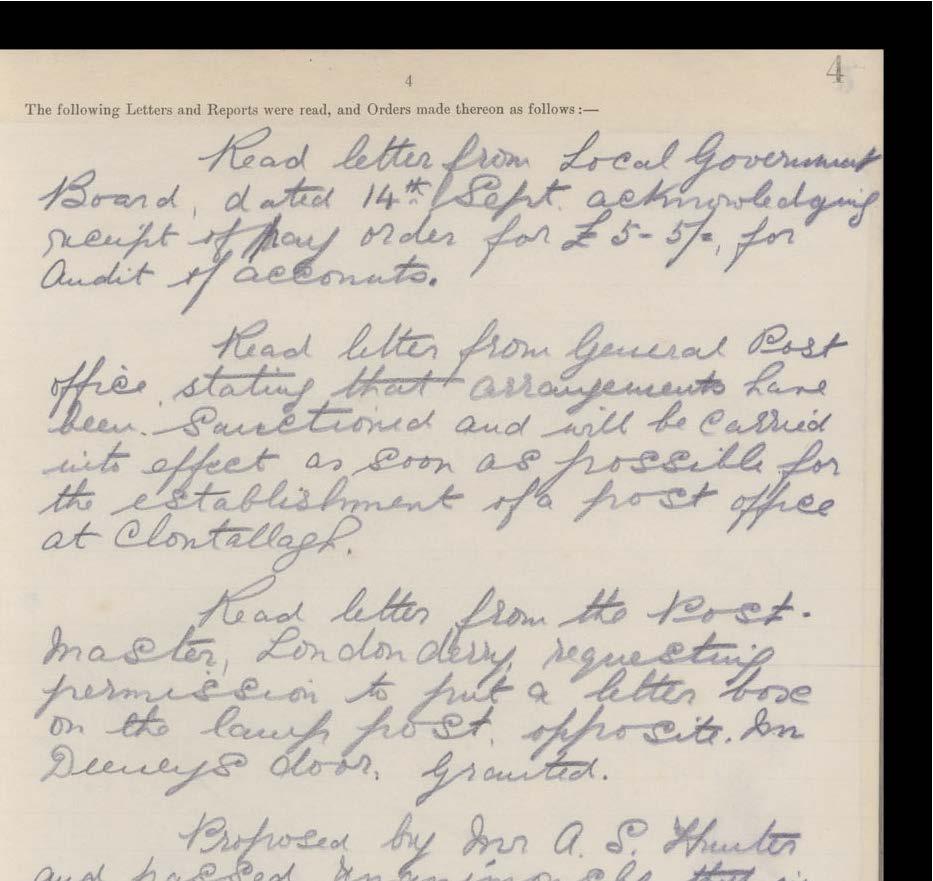 4
4
The following Letters and Reports were read, and Orders made thereon as follows :—
Read letter from Local Government
Board, dated 14th Sept. acknowledging
receipt of pay order for £5-5/-, for
Audit of accounts.
Read letter from General Post
office, stating that arrangements have
been. Sanctioned and will be carried
into effect as soon as possible for
the establishment of a post office
at Clontallagh.
Read letter from the Post-
master, Londonderry, requesting
permission to put a letter box
on the lamp post, opposite. Mr
Deeneys door. Granted.
Proposed by Mr A. S. Hunter
and passed unanimously that in